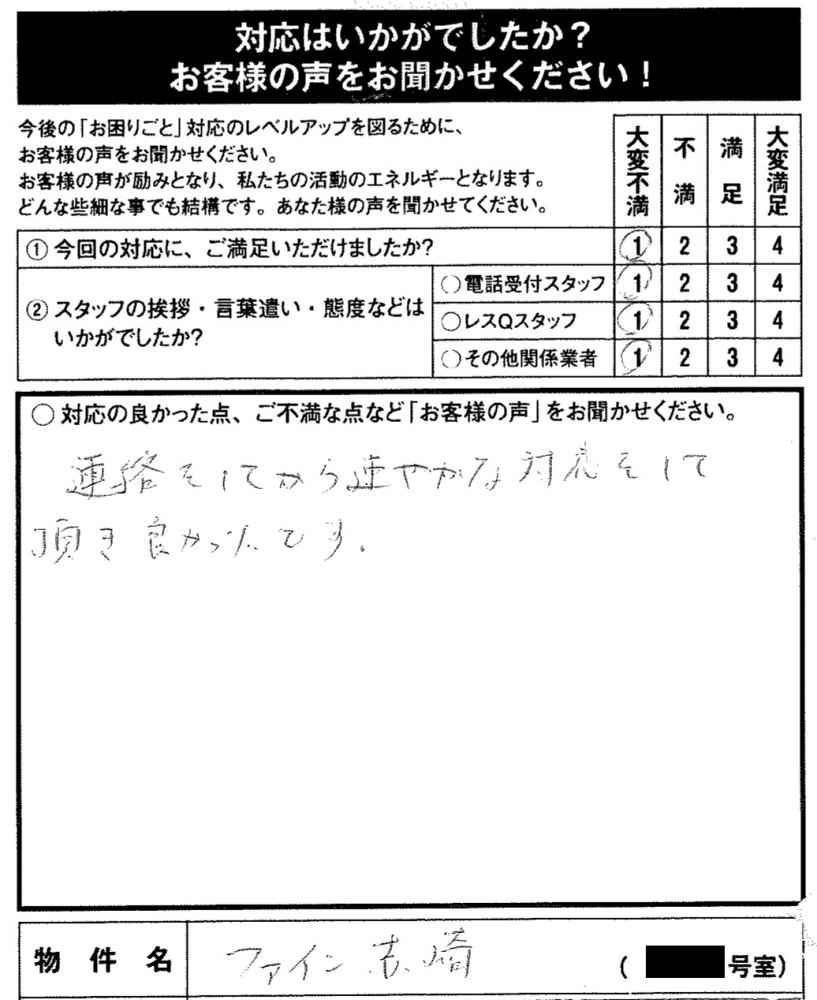 対応はいかがでしたか？
お客様の声をお聞かせください！
今後の「お困りごと」対応のレベルアップを図るために、
お客様の声をお聞かせください。
お客様の声が励みとなり、私たちの活動のエネルギーとなります。
どんな些細な事でも結構です。あなた様の声を聞かせてください。
大変不満 不満 満足 大変満足
① 今回の対応に、ご満足いただけましたか? 1 2 3 4
② スタッフの挨拶・言葉遣い・態度などは
いかがでしたか?
○電話受付スタッフ 1 2 3 4
○レスQスタッフ 1 2 3 4
○その他関係業者 1 2 3 4
○ 対応の良かった点、ご不満な点など「お客様の声」をお聞かせください。
連絡をしてから速やかな対応をして
頂き良かったです.
物件名 ファイン赤崎 ( 号室)